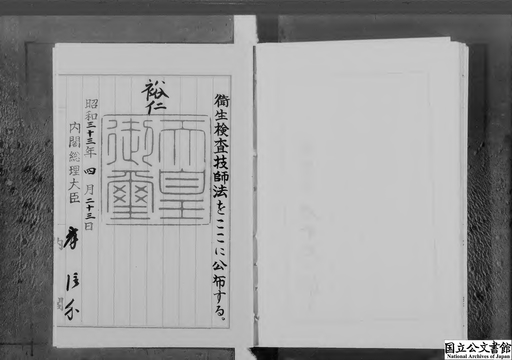 衛生検査技師法をここに公布する。
裕仁
天皇御璽
昭和三十三年四月二十三日
内閣総理大臣 岸信介
国立公文書館
National Archives of Japan